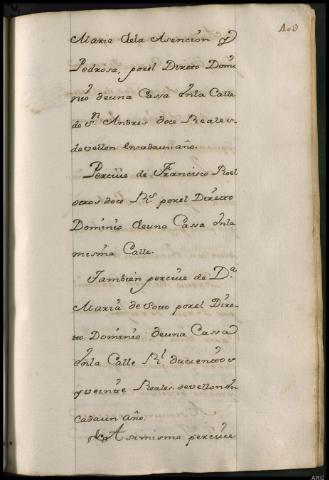 Maria dela Asencion y
Pedrosa, porel Directo Domi
nio deuna Cassa enla Calle
de Sn. Andres doce Reales
devellon encadaun año.
Percive de Francisco Roel
otros doce Rs. porel Directo
Dominio deuna Cassa enla
misma Calle.
Tambien percive de Da.
Maria de Soto porel Dire-
cto Dominio deuna Cassa
enla Calle Rl. ducientos
y veinte Reales devellon en
cadaun año.
Asimismo percive